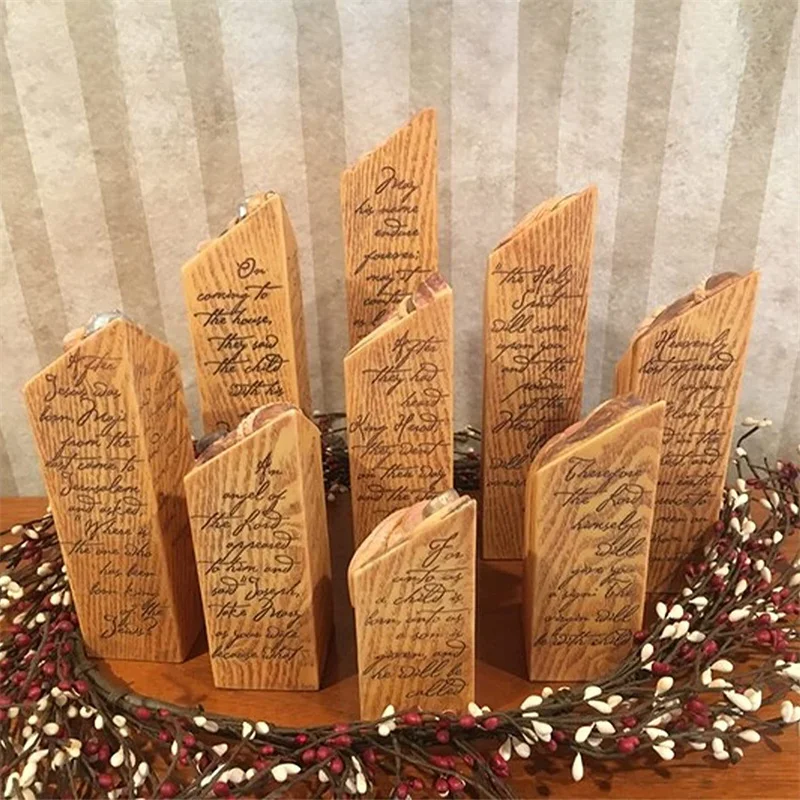 May
his name
endure
forever;
may it
On
coming to
the house,
they saw
the child
with his
"the Holy
Spirit
will come
upon you
and the
power
of the
Most
will
After
Jesus was
born, Magi
from the
east come to
Jerusalem
and asked
"Where is
the one who
has been
born king
of the
Jews?
After
they had
heard
King Herod
they went
on their way
and the
Heavenly
host appeared
saying
An
angel of
the Lord
appeared
to him and
said "Joseph,
take Mary
as your wife
because what
Therefore
the Lord
himself
will
give you
a sign: The
virgin will
be with child
For
unto us
a child is
born, unto us
a son is
given, and
he will be
called